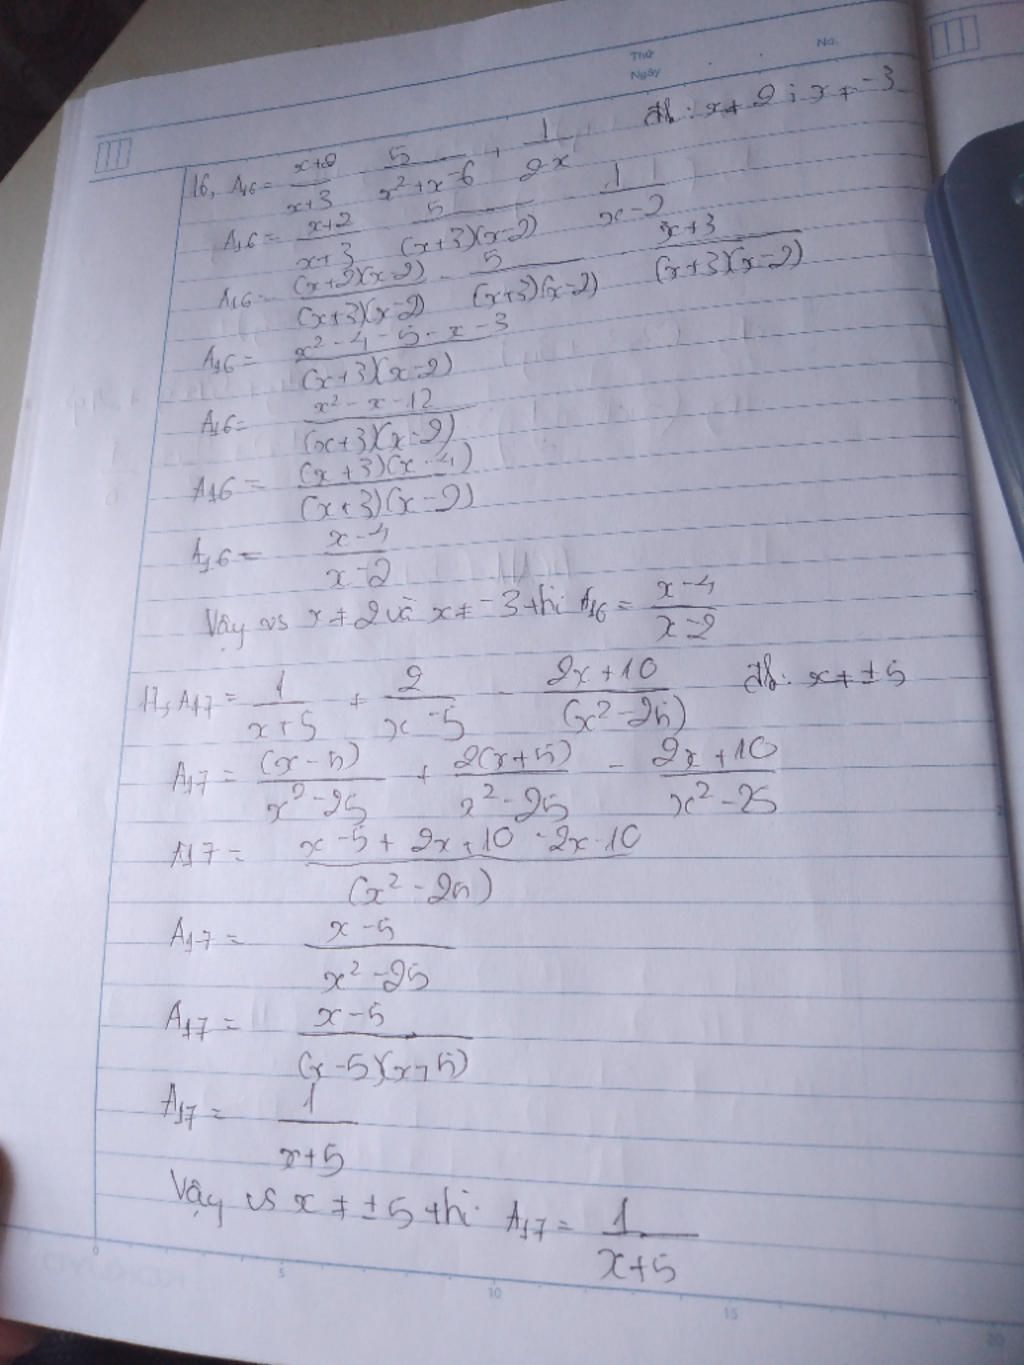 Thứ
Ngày
No.
16, A16 = x+2/x+3 5/x²+x-6 + 1/2-x đk: x ≠ 2; x ≠ -3
A16 = x+2/x+3 5/(x+3)(x-2) 1/x-2
A16 = (x+2)(x-2)/(x+3)(x-2) - 5/(x+3)(x-2) x+3/(x+3)(x-2)
A16 = x²-4-5-x-3/(x+3)(x-2)
A16 = x²-x-12/(x+3)(x-2)
A16 = (x+3)(x-4)/(x+3)(x-2)
A16 = x-4/x-2
Vậy vs x ≠ 2 và x ≠ -3 thì A16 = x-4/x-2
17, A17 = 1/x+5 + 2/x-5 - 2x+10/(x²-25) đk: x ≠ ±5
A17 = (x-5)/x²-25 + 2(x+5)/x²-25 - 2x+10/x²-25
A17 = x-5+2x+10-2x-10/(x²-25)
A17 = x-5/x²-25
A17 = x-5/(x-5)(x+5)
A17 = 1/x+5
Vậy vs x ≠ ±5 thì A17 = 1/x+5
0 5 10 15 20